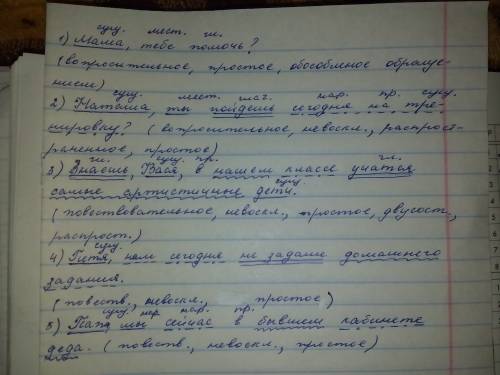 сущ. мест. гл.
1) Мама, тебе помочь?
(вопросительное, простое, обособленное обраще-
нием)
сущ. мест. глаг. нар. пр. сущ.
2) Наташа, ты пойдёшь сегодня на тре-
нировку? (вопросительное, невоскл., распрост-
раненное, простое)
гл. сущ. пр. гл.
3) Знаешь, Вася, в нашем классе учатся
самые артистичные дети.
сущ.
(повествовательное, невоскл., простое, двусост.,
распрост.)
сущ.
4) Петя, нам сегодня не задали домашнего
задания.
(повеств., невоскл., простое)
сущ. нар. пр.
5) Папа, мы сейчас в бывшем кабинете
деда. (повеств., невоскл., простое)